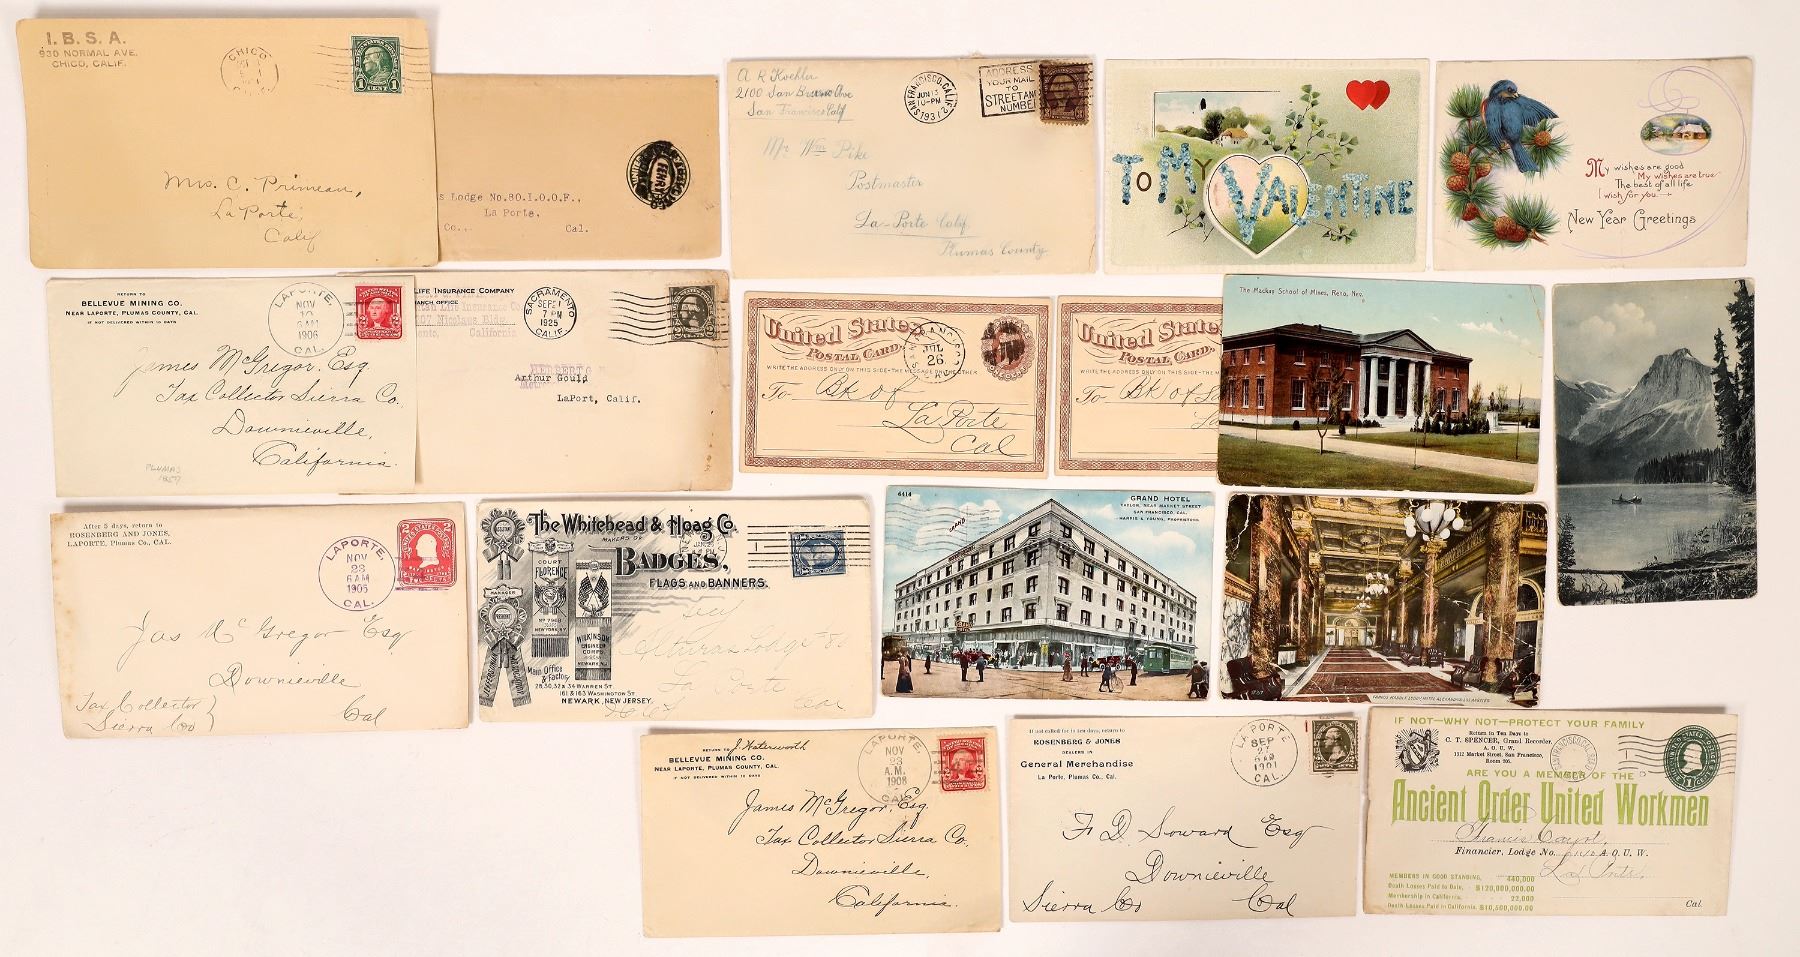 I. B. S. A.
930 NORMAL AVE.
CHICO, CALIF.
CHICO
1 CENT 1
Mrs. C. Primeau,
La Porte,
Calif
s Lodge No.80.I.O.O.F.,
La Porte,
Co.,
Cal.
A R Koehler
2100 San Bruno Ave
San Francisco Calif
SAN FRANCISCO, CALIF.
JUN 13
10-PM
1931
ADDRESS
YOUR MAIL
TO
STREET AND
NUMBER
Mr Wm Pike
Postmaster
La-Porte Calif.
Plumas County
TO MY VALENTINE
My wishes are good
My wishes are true
The best of all life
I wish for you
New Year Greetings
RETURN TO
BELLEVUE MINING CO.
NEAR LAPORTE, PLUMAS COUNTY, CAL.
IF NOT DELIVERED WITHIN 10 DAYS
LAPORTE.
NOV
10
6 AM
1906
CAL.
James McGregor, Esq.
Tax Collector Sierra Co.
Downieville,
California.
PLUMAS
1857
LIFE INSURANCE COMPANY
ANCH OFFICE
07 Nicolaus Bldg.
ento, California
SACRAMENTO
SEP 1
7 PM
1925
CALIF.
Arthur Gould
LaPort, Calif.
United States
POSTAL CARD.
WRITE THE ADDRESS ONLY ON THIS SIDE-THE MESSAGE ON THE OTHER
JUL
26
CAL
To Bk of
La Porte
Cal
United States
POSTAL CARD.
WRITE THE ADDRESS ONLY ON THIS SIDE-THE
To Bk of
La
The Mackay School of Mines, Reno, Nev.
After 5 days, return to
ROSENBERG AND JONES,
LAPORTE, Plumas Co., CAL.
LAPORTE.
NOV
23
6 AM
1905
CAL.
2 2
TWO CTS
Jas McGregor Esq
Downieville
Tax Collector
Sierra Co
Cal
The Whitehead & Hoag Co.
MAKERS OF
BADGES,
FLAGS AND BANNERS.
ASSISTANT
MANAGER
PRESIDENT
COURT
FLORENCE
NO 7968
NEW YORK, N.Y.
WILKINSON
ENGINEER
CORPS.
NEWARK N.J.
Main Office
& Factory
28, 30, 32 & 34 WARREN ST.
161 & 163 WASHINGTON ST.
NEWARK, NEW JERSEY.
Secy
Alturas Lodge 80
La Porte
Cal
6414
GRAND HOTEL
TAYLOR, NEAR MARKET STREET
SAN FRANCISCO, CAL.
HARRIS & YOUNG, PROPRIETORS.
GRAND
FAMOUS MARBLE LOBBY HOTEL ALEXANDRIA LOS ANGELES
RETURN TO J. Waterworth
BELLEVUE MINING CO.
NEAR LAPORTE, PLUMAS COUNTY, CAL.
IF NOT DELIVERED WITHIN 10 DAYS
LAPORTE.
NOV
23
A.M.
1908
CAL.
James McGregor, Esq.
Tax Collector Sierra Co.
Downieville,
California.
If not called for in ten days, return to
ROSENBERG & JONES
DEALERS IN
General Merchandise
La Porte, Plumas Co., Cal.
LAPORTE
SEP
27
6 AM
1901
CAL
F. D. Soward Esq
Downieville
Sierra Co Cal
IF NOT—WHY NOT—PROTECT YOUR FAMILY
Return in Ten Days to
C. T. SPENCER, Grand Recorder,
A. O. U. W.
1312 Market Street, San Francisco,
Room 206.
ARE YOU A MEMBER OF THE
Ancient Order United Workmen
Financier, Lodge No. A. O. U. W.
La Porte
MEMBERS IN GOOD STANDING, 440,000
Death Losses Paid to Date, $120,000,000.00
Membership in California, 22,000
Death Losses Paid in California, $10,500,000.00
Cal.